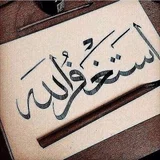 أستغفرالله